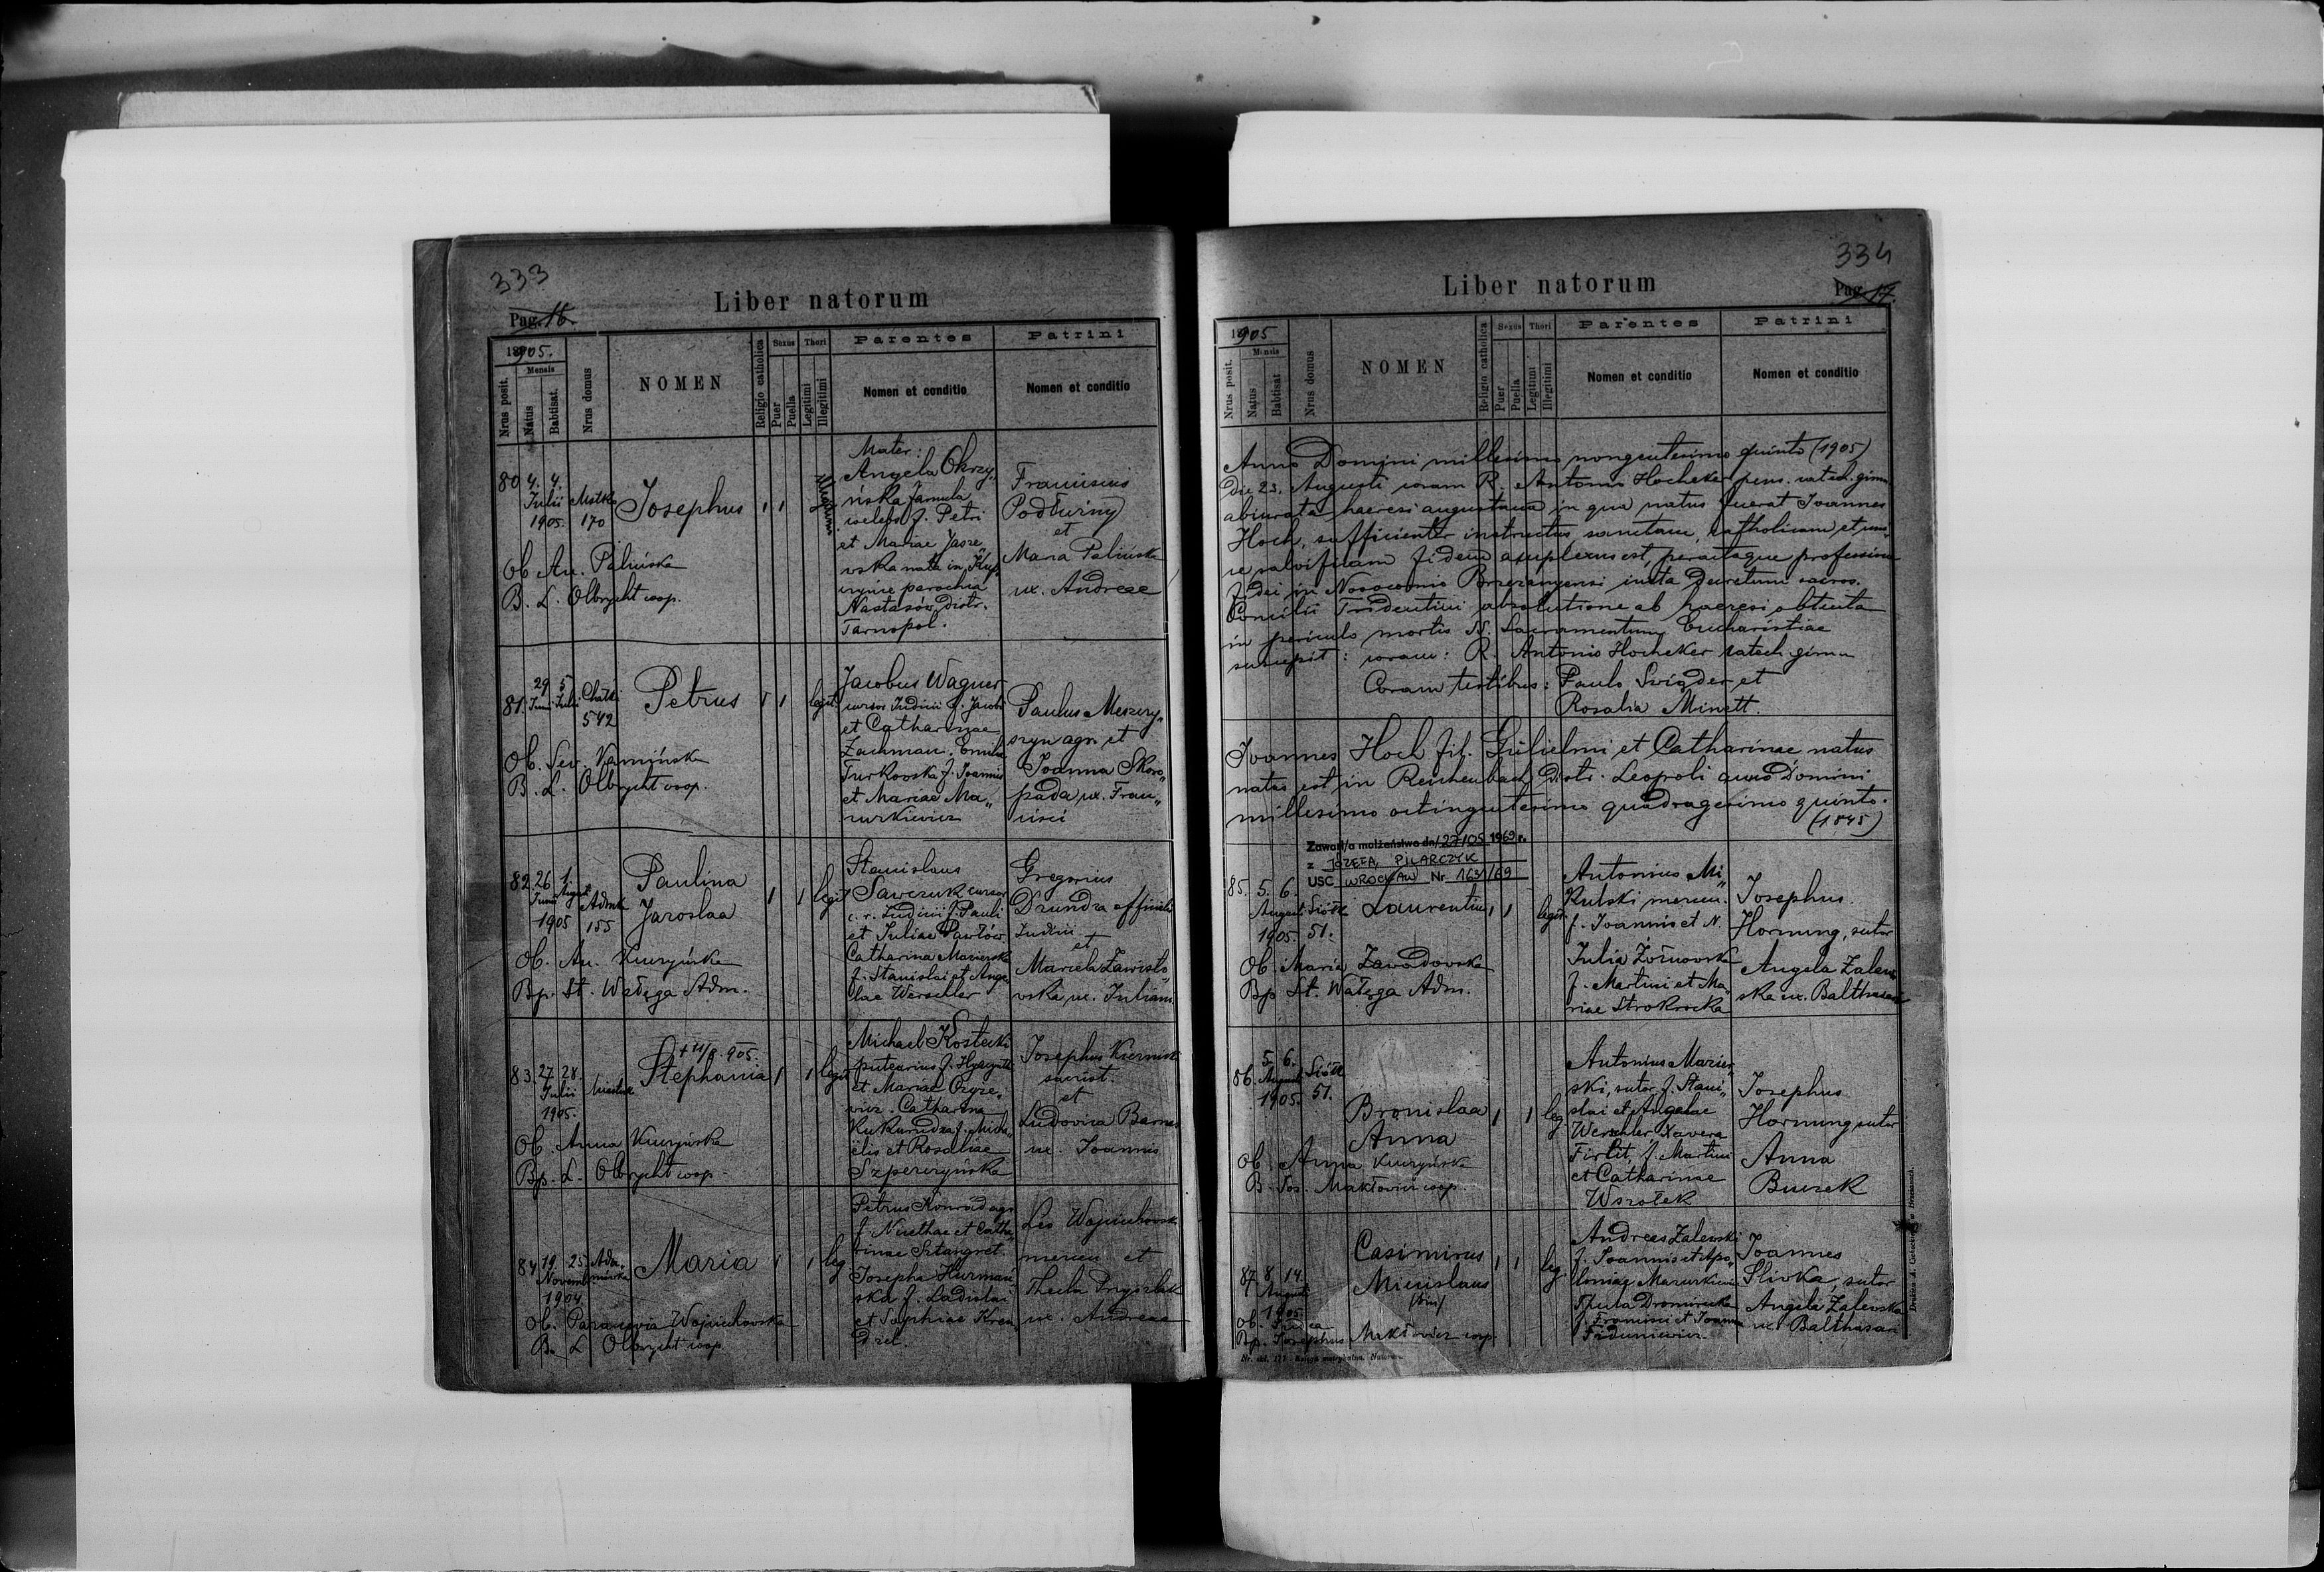 333
Pag. 16.
Liber natorum
1905.
Mensis
Nrus posit.
Natus
Babtisat.
Nrus domus
NOMEN
Religio catholica
Sexus
Puer
Puella
Thori
Legitimi
Illegitimi
Parentes
Nomen et conditio
Patrini
Nomen et conditio
80 4. 4.
Julii
1905.
170
Josephus
1 1
Mater:
Angela Okrzy„
ńska famula
f. Petri
et Mariae
nata in
parochia
Nastasów Distr.
Tarnopol.
Franciscus
Podłużny
et
Maria Palińska
ux. Andreae
Ob. An. Palińska
B. L. Olbrycht coop.
81. 29 5
Junii Julii
542
Petrus
1 1
legit.
Jacobus Wagner
cursor Judicii f. Jacobi
et Catharinae
Zachman. Emilia
Turkovska f. Joannis
et Mariae Ma„
zurkiewicz
Paulus
agr. et
Joanna Skoro„
pada ux. Fran„
cisci
Ob. Sev. Kamińska
B. L. Olbrycht coop.
82. 26 1.
Junii August
1905
155
Paulina
Jaroslaa
1 1
legit
Stanislaus
Sawczuk cursor
c. r. Judicii f. Pauli
et Juliae Pawłów
Catharina Mazierska
f. Stanislai et Ange
lae Werschler
Gregorius
Dzundza
Judicii
et
Mariela Zawisto„
vska ux. Juliani
Ob. An. Kuczyńska
Bp. St. Wałęga Adm.
83. 27 28.
Julii
1905.
905.
Stephania
1 1
legit
Michael Kostecki
f. Hyacynthi
et Mariae
Catharina
Kukurudza f. Micha„
ëlis et Rosaliae
Szpeczyńska
Josephus
sacrist.
et
Ludovica
ux. Joannis
Ob. Anna Kuczyńska
Bp. L. Olbrycht coop.
84 19. 25
Novemb
1904
Maria
1 1
leg
Petrus Konrad agr.
f. et Catha„
rinae Sztangret.
Josepha Hurman
ska f. Ladislai
et Sophiae Kren„
dzel.
Leo Wojciechowski
et
Thecla
ux. Andreae
Ob. Wojciechovska
B. L. Olbrycht coop
334
Pag. 17.
Liber natorum
1905
Mensis
Nrus posit.
Natus
Babtisat.
Nrus domus
NOMEN
Religio catholica
Sexus
Puer
Puella
Thori
Legitimi
Illegitimi
Parentes
Nomen et conditio
Patrini
Nomen et conditio
Anno Domini millesimo nongentesimo quinto (1905)
Die 23. Augusti coram R. Antonio Hocheker pens. catech. gimn
abiurata haeresi augustana in qua natus fuerat Joannes
Hoch, sufficienter instructus sanctam, catholicam et uni„
ce salvificam fidem amplexus est, peractaque professione
fidei in Nosocomio Brzezanyensi iuxta Decretum sacros.
Concilii Tridentini absolutione ab haeresi obtenta
in periculo mortis SS. Sacramentum Eucharistiae
suscepit: coram: R. Antonio Hocheker catech. gimn
Coram testibus: Paulo Świąder et
Rosalia Minett.
Joannes Hoch fil. Gulielmi et Catharinae natus
natus est in Reichenbach Distr. Leopoli anno Domini
millesimo octingentesimo quadragesimo quinto.
(1845)
Zawarł/a małżeństwo dn. 27/05 1969 r.
z JÓZEFĄ PILARCZYK
USC WROCŁAW Nr 163/69
85. 5. 6.
August
1905.
Siółk
51.
Laurentius
1 1
legit
Antonius Mi„
kulski mercen.
f. Joannis et N.
Julia Żółnowska
f. Martini et Ma„
riae Strokocka
Josephus
Hornung, sutor
Angela Zalew
ska ux. Balthasari
Ob. Maria Zawadowska
Bp. St. Wałęga Adm.
86. 5 6.
August
1905.
Siółk
51.
Bronislaa
Anna
1 1
leg
Antonius Mazier
ski, sutor f. Stani„
slai et Angelae
Werschler Xavera
Firlit, f. Martini
et Catharinae
Wszołek
Josephus
Hornung sutor
Anna
Buczek
Ob. Anna Kuczyńska
B. Jos. Makłowicz coop.
87. 8. 14.
August
1905
Casimirus
Miecislaus
(bin)
1 1
leg.
Andreas Zalewski
f. Joannis et Apo„
loniae Mazurkiewicz
f. Francisci et Joanna
Joannes
Slivka, sutor
Angela Zalevska
ux. Balthasari
Bp. Josephus Makłowicz coop.